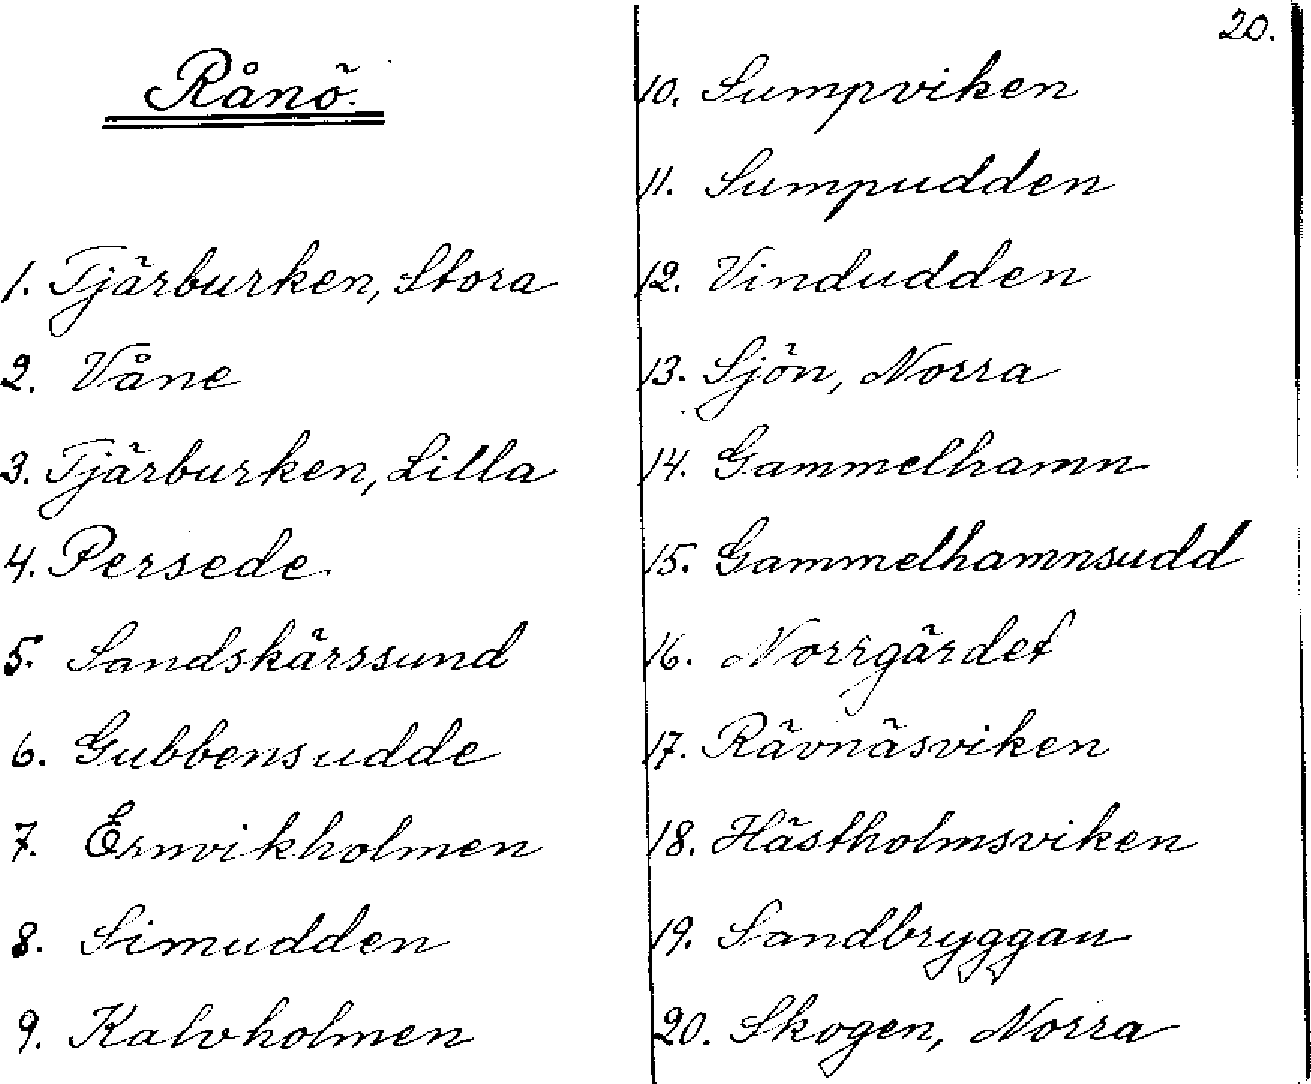 Rånö.
1. Tjärburken, Stora
2. Våne
3. Tjärburken, Lilla
4. Persede
5. Sandskärssund
6. Gubbensudde
7. Ernvikholmen
8. Simudden
9. Kalvholmen
20.
10. Sumpviken
11. Sumpudden
12. Vindudden
13. Sjön, Norra
14. Gammelhamn
15. Gammelhamnsudd
16. Norrgärdet
17. Rävnäsviken
18. Hästholmsviken
19. Sandbryggan
20. Skogen, Norra